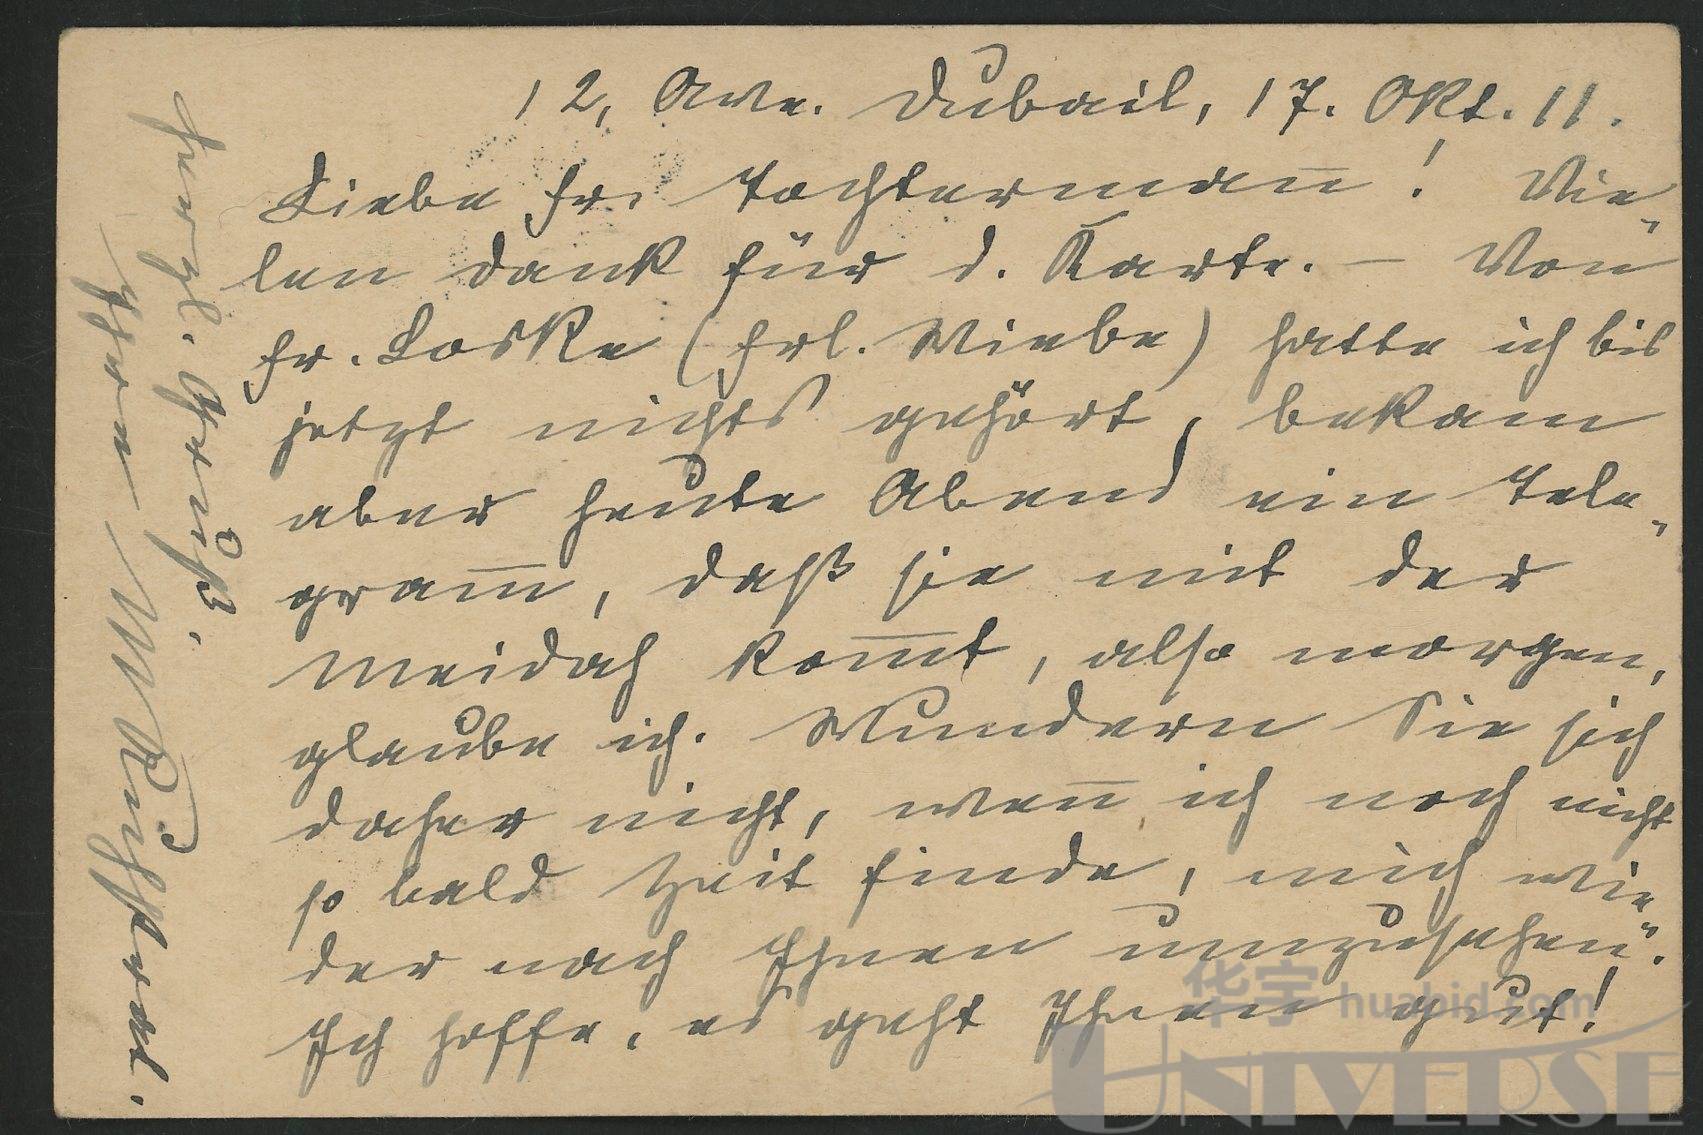 12, Ave. Dubail, 17. Okt. 11.
Liebe Fr. Tochtermañ! Vie-
len Dank für d. Karte. — Von
Fr. Loske (Frl. Wiebe) hatte ich bis
jetzt nichts gehört, bekam
aber heute Abend ein Tele-
gram̅, daß sie mit der
Meidah kom̅t, also morgen,
glaube ich. Wundern Sie sich
daher nicht, weñ ich noch nicht
so bald Zeit finde, mich wie-
der nach Ihnen umzusehen.
Ich hoffe, es geht Ihnen gut!
Herzl. Gruß.
Ihre M
华宇 huabid.com
UNIVERSE